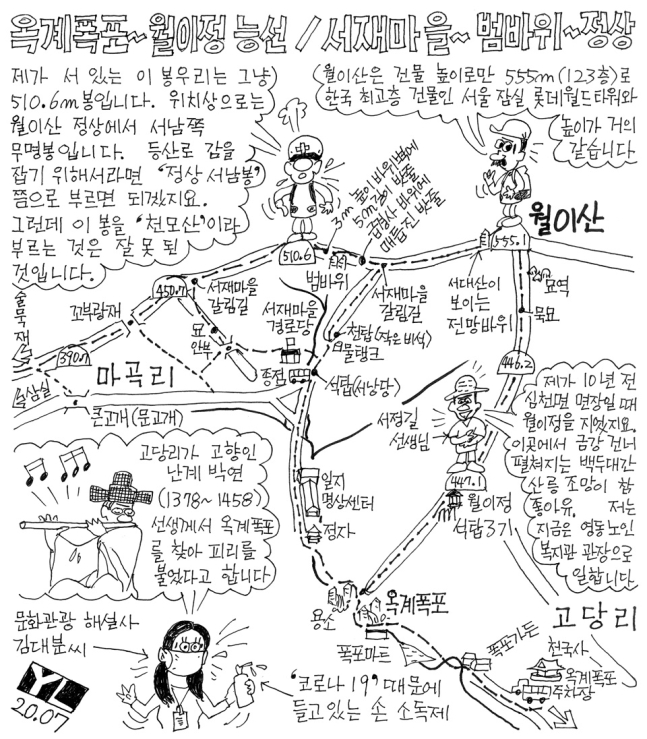 옥계폭포~월이정 능선 / 서재마을~범바위~정상
제가 서 있는 이 봉우리는 그냥
510.6m봉입니다. 위치상으로는
월이산 정상에서 서남쪽
무명봉입니다. 등산로 감을
잡기 위해서라면 '정상 서남봉'
쯤으로 부르면 되겠지요.
그런데 이 봉을 '천모산'이라
부르는 것은 잘 못 된
것입니다.
월이산은 건물 높이로만 555m(123층)로
한국 최고층 건물인 서울 잠실 롯데월드타워와
높이가 거의
같습니다
3m 높이 바위벽에
50m길이 밧줄
급경사 바위에
매듭진 밧줄
월이산
510.6
555.1
범바위
서재마을
갈림길
서대산이
보이는
전망바위
묘역
묵묘
450.7
서재마을
갈림길
서재마을
경로당
꼬부랑재
묘
안부
천탑(작은 비석)
물탱크
390.7
446.2
마곡리
종점
석탑(서낭당)
삼실
큰고개(문고개)
서정길
선생님
제가 10년 전
심천면 면장일 때
월이정을 지었지요.
이곳에서 금강 건너
펼쳐지는 백두대간
산릉 조망이 참
좋아유. 저는
지금은 영동노인
복지관 관장으로
일합니다
447.1
월이정
석탑3기
고당리가 고향인
난계 박연
(1378~1458)
선생께서 옥계폭포
를 찾아 피리를
불었다고 합니다
일지
명상센터
정자
용소
옥계폭포
폭포마트
폭포가든
고당리
천국사
옥계폭포
주차장
문화관광 해설사
김대분씨
'코로나 19' 때문에
들고있는 손 소독제
YL
20.07